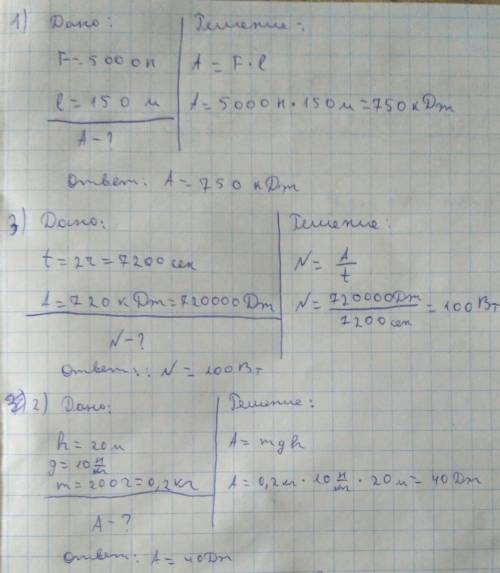 1) Дано: Решение:
F=5000н A = F·l
l = 150 м A = 5000 н · 150 м = 750 кДж
A-?
Ответ: A = 750 кДж
3) Дано: Решение:
t = 2ч = 7200 сек N = A/t
A = 720 кДж = 720000 Дж N = 720000Дж/7200 сек = 100 Вт
N-?
Ответ: N = 100 Вт
2) Дано: Решение:
h = 20 м A = mgh
g = 10 н/кг
m = 200 г = 0,2 кг A = 0,2 кг · 10 н/кг · 20 м = 40 Дж
A-?
Ответ: A = 40 Дж